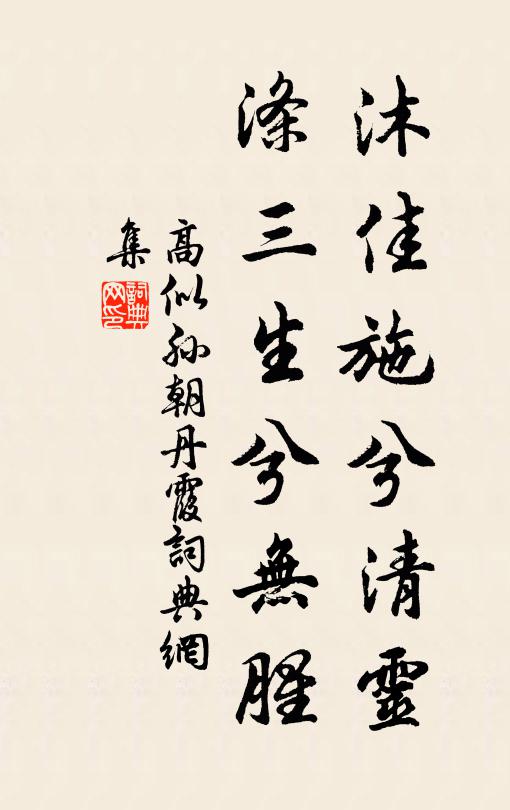 沐佳施兮清靈
滌三生兮無腥
高似孫朝丹霞詞典網
集
詞典
网印